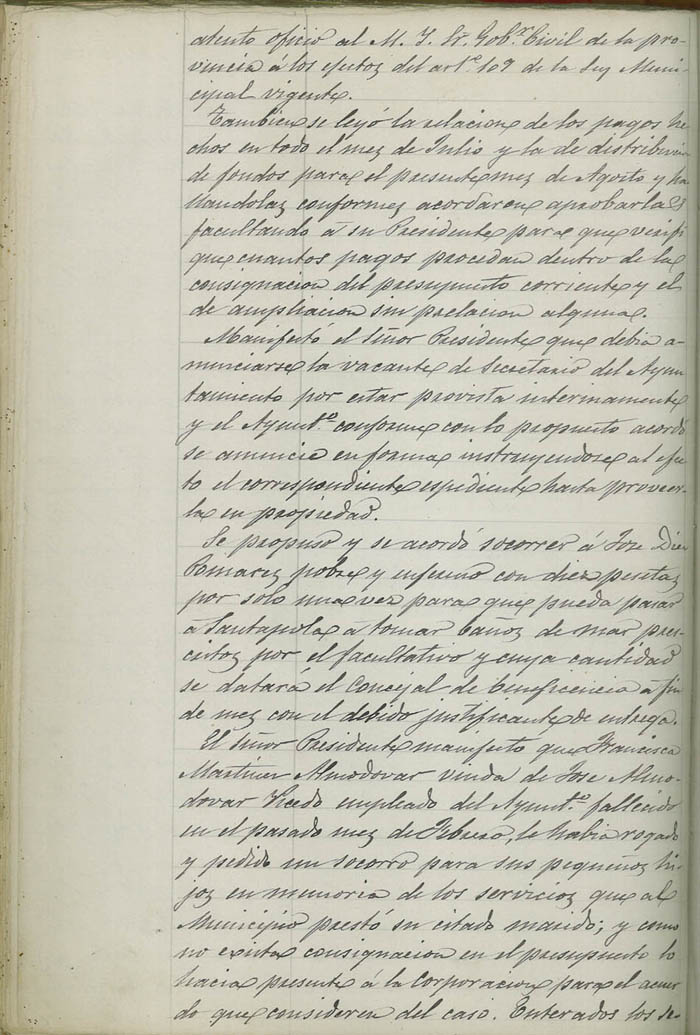 atento oficio al M. I. Sr. Gob.r Civil de la pro-
vincia á los efectos del art.o 109 de la Ley Muni-
cipal vigente.
Tambien se leyó la relacion de los pagos he
chos en todo el mes de Julio y la de distribucion
de fondos para el presente mes de Agosto y ha
llandolas conformes acordaron aprobarlas
facultando á su Presidente para que verifi
que cuantos pagos procedan dentro de la
consignacion del presupuesto corriente y el
de ampliacion sin prelacion alguna.
Manifestó el Señor Presidente que debia a-
nunciarse la vacante de Secretario del Ayun-
tamiento por estar provista interinamente
y el Ayunt.o conforme con lo propuesto acordó
se anuncie en forma instruyendose al efec
to el correspondiente espediente hasta proveer-
la en propiedad.
Se propuso y se acordó socorrer á Jose Diez
Pomares pobre y enfermo con diez pesetas
por solo una vez para que pueda pasar
á Santapola á tomar baños de mar pres-
critos por el facultativo y cuya cantidad
se datará el Concejal de Beneficencia á fin
de mes con el debido justificante de entrega.
El Señor Presidente manifestó que Francisca
Martinez Almodovar viuda de Jose Almo-
dovar Vicedo empleado del Ayunt.o fallecido
en el pasado mes de Febrero, le habia rogado
y pedido un socorro para sus pequeños hi-
jos en memoria de los servicios que al
Municipio prestó su citado marido; y como
no exista consignacion en el presupuesto lo
hacia presente á la Corporacion para el acuer
do que consideren del caso. Enterados los se-